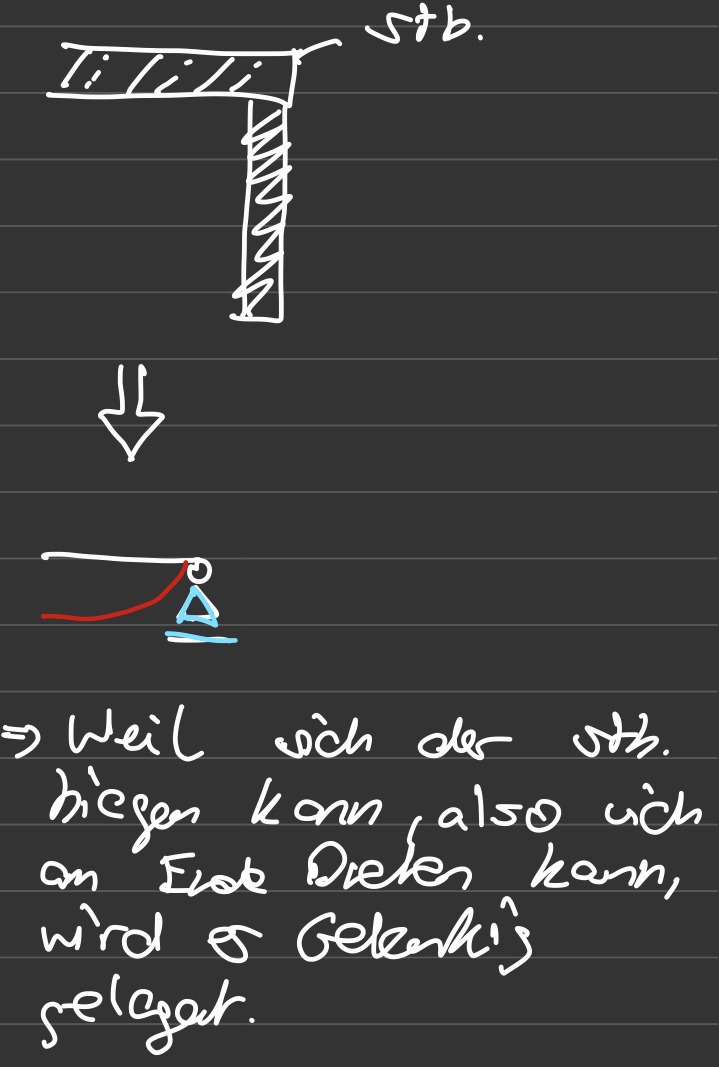 Stb.
⇒ Weil sich der Stb.
biegen kann, also sich
am Ende Drehen kann,
wird er Gelenkig
gelagert.